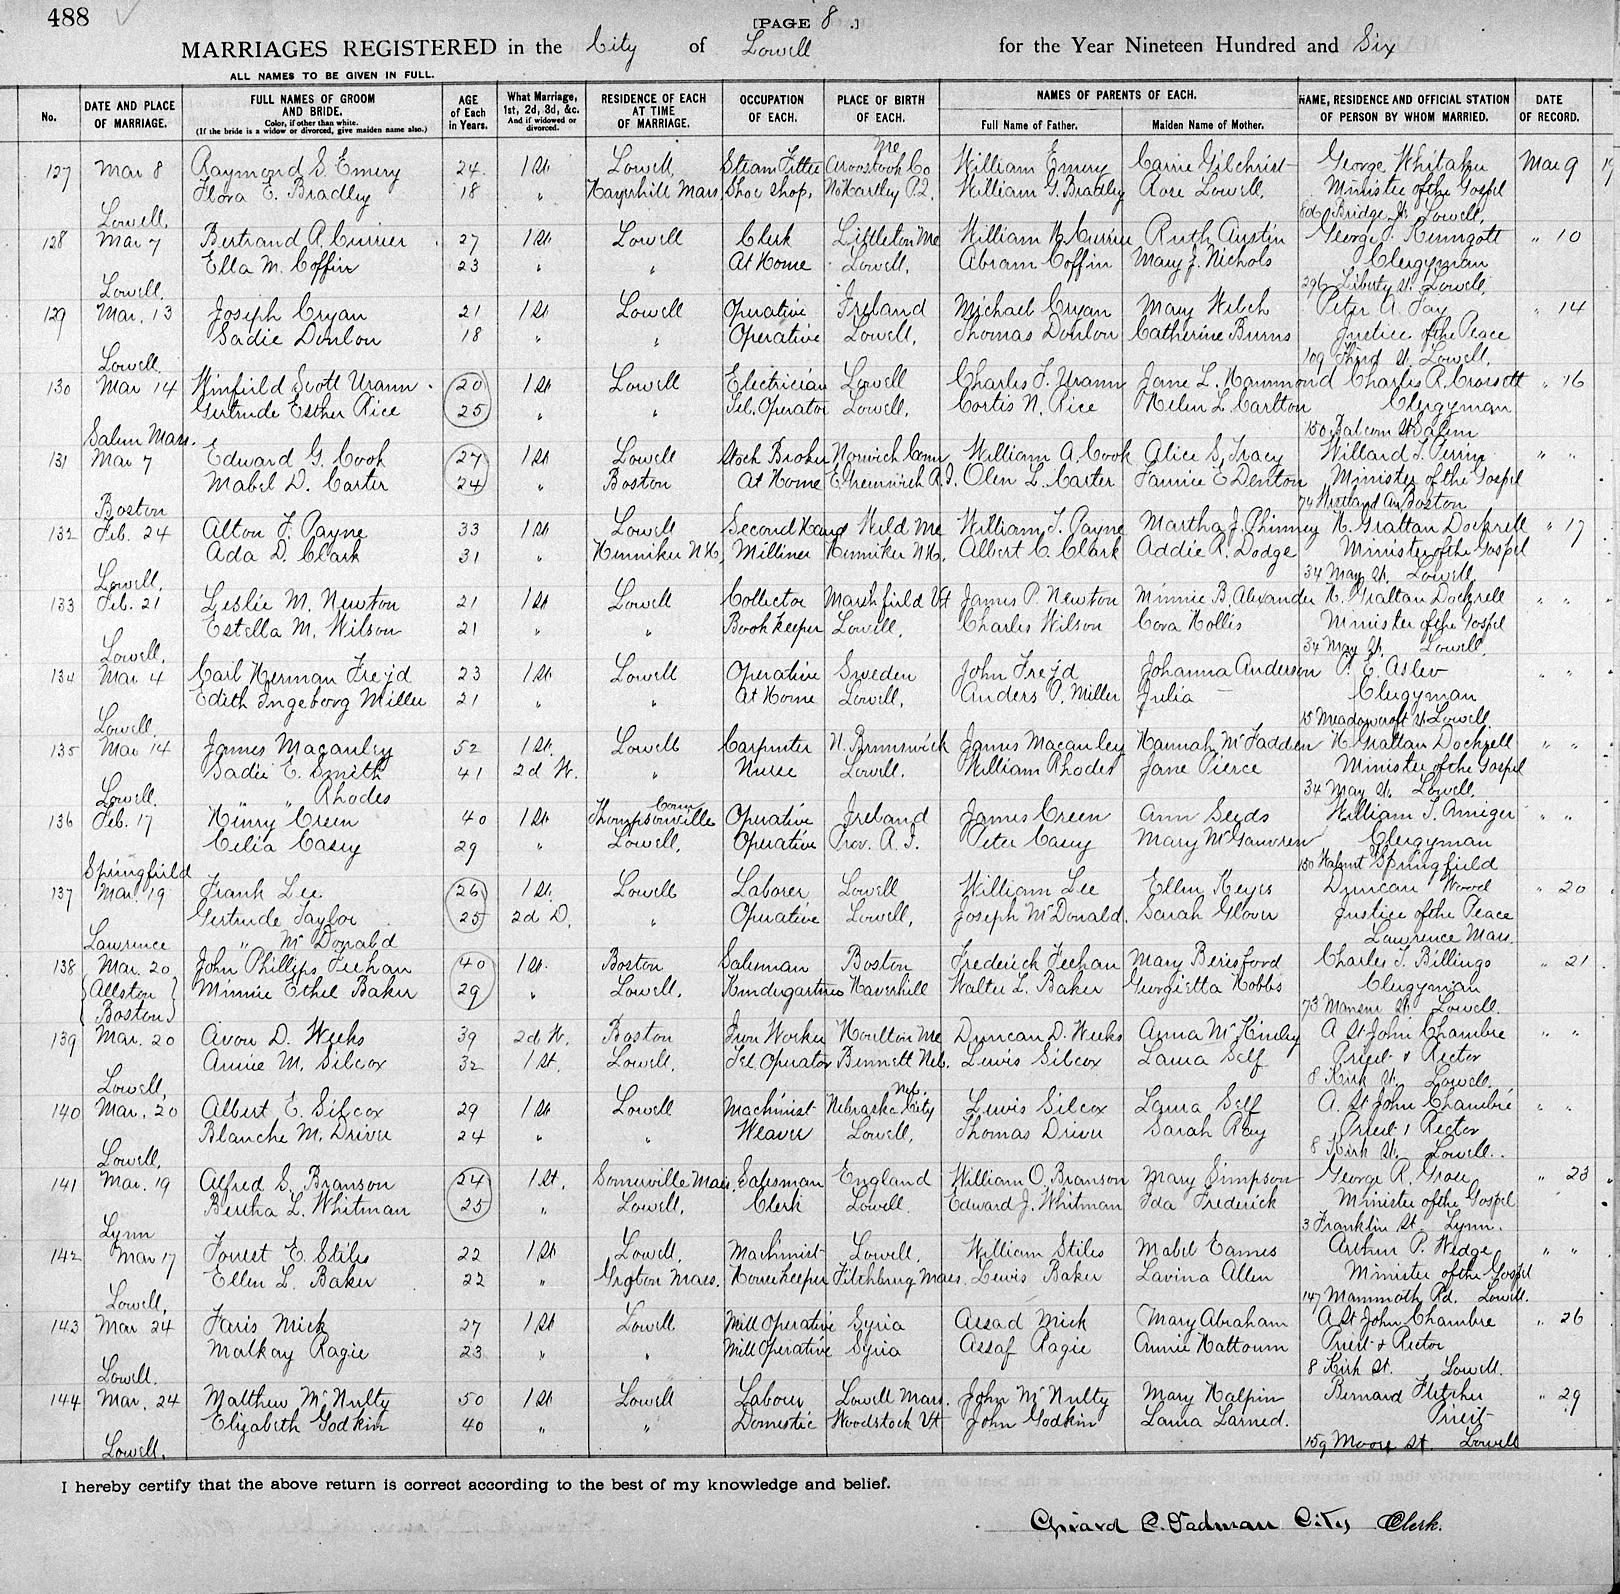 488
[PAGE 8.]
MARRIAGES REGISTERED in the City of Lowell for the Year Nineteen Hundred and Six
ALL NAMES TO BE GIVEN IN FULL.
No. DATE AND PLACE OF MARRIAGE. FULL NAMES OF GROOM AND BRIDE. Color, if other than white. (If the bride is a widow or divorced, give maiden name also.) AGE of Each in Years. What Marriage, 1st, 2d, 3d, &c. And if widowed or divorced. RESIDENCE OF EACH AT TIME OF MARRIAGE. OCCUPATION OF EACH. PLACE OF BIRTH OF EACH. NAMES OF PARENTS OF EACH. Full Name of Father. Maiden Name of Mother. NAME, RESIDENCE AND OFFICIAL STATION OF PERSON BY WHOM MARRIED. DATE OF RECORD.
127 Mar 8 Raymond S. Emery 24 1st Lowell, Steam Fitter Aroostook Co Me William E Emery Carrie Gilchrist George Whitaker Mar 9
Flora E. Bradley 18 " Haverhill Mass, Shoe Shop, William G. Bradley Rose Lowell, Minister of the Gospel
Lowell, 806 Bridge St. Lowell,
128 Mar 7 Bertrand A. Currier 27 1st Lowell Clerk Littleton Me William W. Currier Ruth Austin George F. Kenngott " 10
Ella M. Coffin 23 " " At Home Lowell, Abram Coffin Mary J. Nichols Clergyman
Lowell, 296 Liberty St. Lowell,
129 Mar. 13 Joseph Cryan 21 1st Lowell Operative Ireland Michael Cryan Mary Welch Peter A. Fay " 14
Sadie Donlon 18 " " Operative Lowell, Thomas Donlon Catherine Burns Justice of the Peace
Lowell, 109 Third St. Lowell,
130 Mar 14 Winfield Scott Urann 20 1st Lowell Electrician Lowell Charles F. Urann Jane L. Hammond Charles R. Crossett " 16
Gertrude Esther Rice 25 " " Tel. Operator Lowell, Cortis N. Rice Helen L. Carlton Clergyman
Salem Mass. 150 Balcom St Salem
131 Mar 7 Edward G. Cook 27 1st Lowell Stock Broker Norwich Conn William A. Cook Alice S. Tracy Willard T. Perrin " "
Mabel D. Carter 24 " Boston At Home E. Greenwich R.I. Olen L. Carter Fannie E Denton Minister of the Gospel
Boston 74 Westland Av Boston
132 Feb. 24 Alton F. Payne 33 1st Lowell Second Hand Weld Me William T. Payne Martha J. Phinney H. Grattan Dockrell " 17
Ada D. Clark 31 " Henniker N.H, Milliner Henniker N.H. Albert C. Clark Addie R. Dodge Minister of the Gospel
Lowell, 34 May St. Lowell
133 Feb. 21 Leslie M. Newton 21 1st Lowell Collector Marshfield Vt James P. Newton Minnie B. Alexander H. Grattan Dockrell " "
Estella M. Wilson 21 " " Book keeper Lowell, Charles Wilson Cora Hollis Minister of the Gospel
Lowell, 34 May St. Lowell,
134 Mar 4 Carl Herman Frejd 23 1st Lowell Operative Sweden John Frejd Johanna Anderson P. E. Aslev " "
Edith Ingeborg Miller 21 " " At Home Lowell, Anders P. Miller Julia — Clergyman
Lowell, 15 Meadowcroft St Lowell
135 Mar 14 James Macauley 52 1st. Lowell Carpenter N. Brunswick James Macauley Hannah McFadden H. Grattan Dockrell " "
Sadie E. Smith 41 2d W. " Nurse Lowell. William Rhodes Jane Pierce Minister of the Gospel
Lowell. " " Rhodes 34 May St. Lowell
136 Feb. 17 Henry Creen 40 1st Thompsonville Conn Operative Ireland James Creen Ann William T. " "
Celia Casey 29 " Lowell, Operative Prov. R.I. Peter Casey Mary Clergyman
Springfield 150 Walnut St Springfield
137 Mar. 19 Frank Lee 26 1st Lowell Laborer Lowell William Lee Ellen Keyes Duncan Wood " 20
Gertrude Taylor 25 2d D. " Operative Lowell, Joseph McDonald. Sarah Glover Justice of the Peace
Lawrence " McDonald Lawrence Mass.
138 Mar. 20 John Phillips Feehan 40 1st. Boston Salesman Boston Frederick Feehan Mary Beresford Charles T. Billings " 21
{Allston} Minnie Ethel Baker 29 " Lowell. Kindergartner Haverhill Walter L. Baker Georgietta Hobbs Clergyman
{Boston} 73 Mansur St. Lowell.
139 Mar. 20 Avon D. Weeks 39 2d W. Boston Iron Worker Houlton Me Duncan D. Weeks Anna McKinley A St John Chambre " "
Annie M. Silcox 32 1st. Lowell, Tel. Operator Bennett Neb. Lewis Silcox Laura Self Priest & Rector
Lowell, 8 Kirk St. Lowell,
140 Mar. 20 Albert E. Silcox 29 1st Lowell Machinist Nebraska City Neb. Lewis Silcox Laura Self A. St John Chambré " "
Blanche M. Driver 24 " " Weaver Lowell, Thomas Driver Sarah Ray Priest & Rector
Lowell, 8 Kirk St. Lowell.
141 Mar. 19 Alfred S. Branson 24 1st. Somerville Mass. Salesman England William O. Branson Mary Simpson George R. Grose " 23
Bertha L. Whitman 25 " Lowell, Clerk Lowell Edward J. Whitman Ida Frederick Minister of the Gospel
Lynn 3 Franklin St. Lynn.
142 Mar 17 Forrest E. Stiles 22 1st Lowell. Machinist Lowell. William Stiles Mabel Eames Arthur P. Wedge " "
Ellen L. Baker 22 " Groton Mass. Housekeeper Fitchburg Mass. Lewis Baker Lavina Allen Minister of the Gospel
Lowell, 147 Mammoth Rd. Lowell.
143 Mar 24 Faris Mick 27 1st Lowell Mill Operative Syria Assad Mick Mary Abraham A St John Chambre " 26
Malkay Ragie 23 " " Mill Operative Syria Assaf Ragie Annie Hattoum Priest & Rector
Lowell. 8 Kirk St. Lowell.
144 Mar. 24 Matthew McNulty 50 1st Lowell Laborer Lowell Mass. John McNulty Mary Halpin Bernard Fletcher " 29
Elizabeth Godkin 40 " " Domestic Woodstock Vt John Godkin Laura Larned. Priest
Lowell. 159 Moore St. Lowell
I hereby certify that the above return is correct according to the best of my knowledge and belief.
Girard P. Dadman City Clerk.